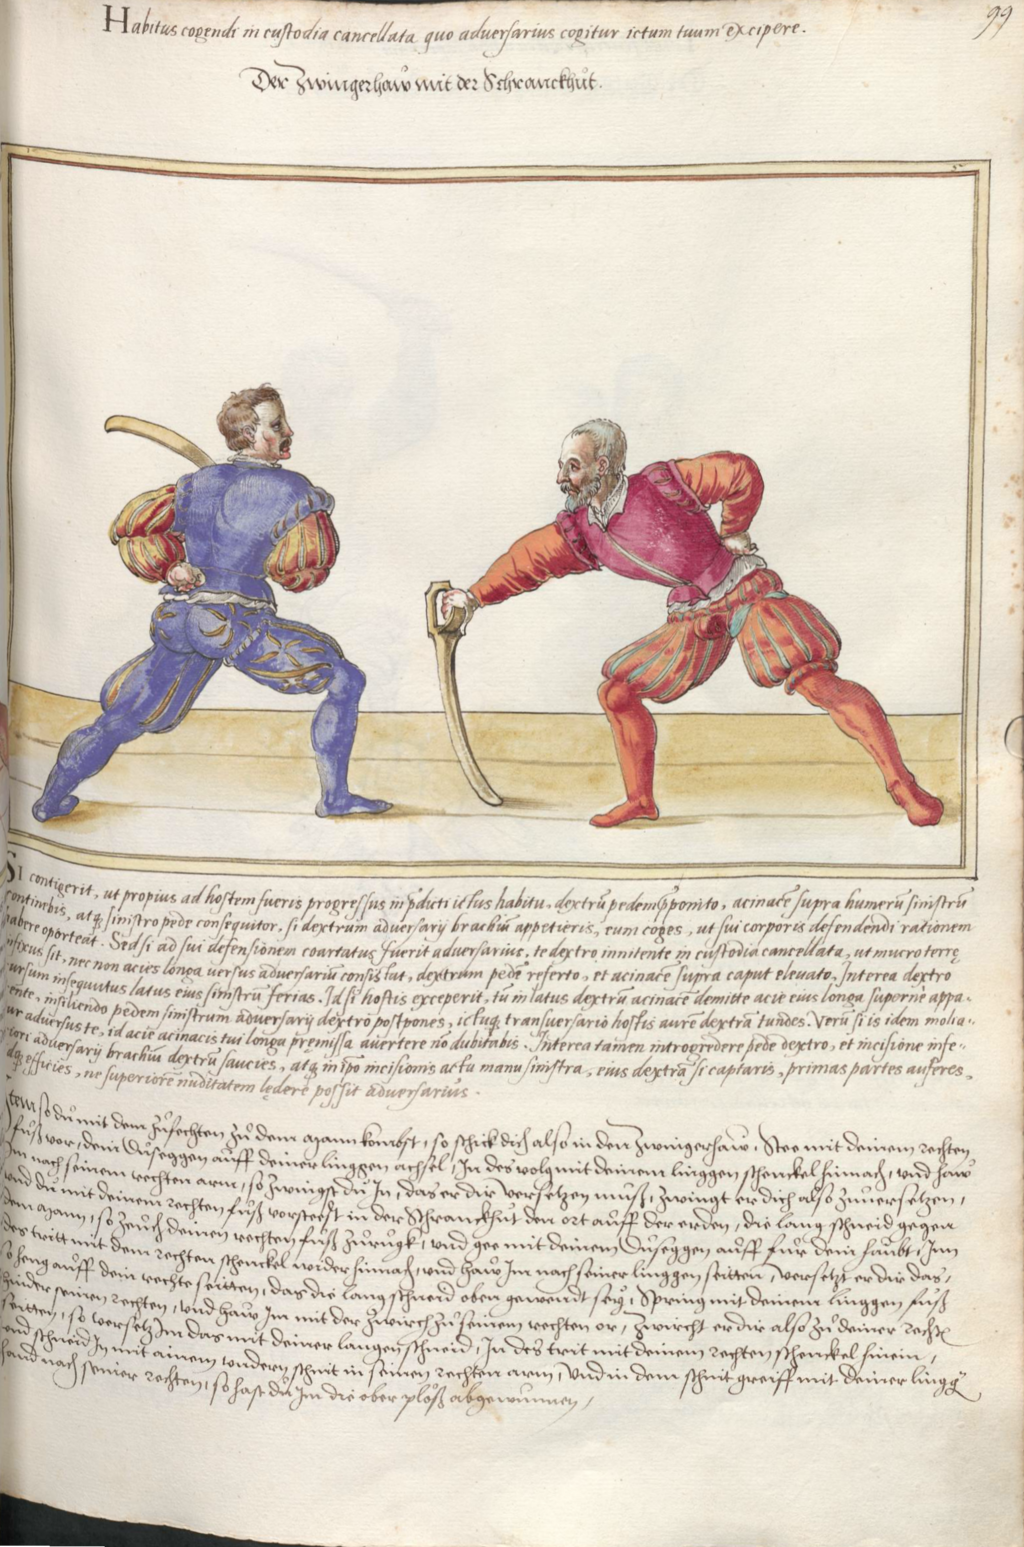 99
Habitus cogendi in custodia cancellata quo adversarius cogitur ictum tuum excipere.
Der Zwingerhaw mit der Schranckhůt.
SI contigerit, ut propius ad hostem fueris progressus in p̄dicti ictus habitu, dextrū pedem p̄ponito, acinacē supra humerū sinistrū
continebis, atq; sinistro pede consequitor, si dextrum adversarij brachiū appetieris, eum coges, ut sui corporis defendendi rationem
habere oporteat. Sed si ad sui defensionem coartatus fuerit adversarius, te dextro innitente in custodia cancellata, ut mucro terrę
infixus sit, nec non acies longa versus adversariū consistat, dextrum pedē referto, et acinacē supra caput elevato, Interea dextro
ursum insequutus latus eius sinistrū ferias. Id si hostis exceperit, tū in latus dextrū acinacē demitte acie eius longa supernè appa-
ente, insiliendo pedem sinistrum adversarij dextro postpones, ictuq; transversario hostis aurē dextrā tundes. Verū si is idem molia-
ur adversus te, id acie acinacis tui longa pręmissa avertere nō dubitabis. Interea tamen introgredere pede dextro, et incisione infe-
iori adversarij brachiū dextrū saucies, atq; in ip̄o incisionis actu manu sinistra, eius dextrā si captaris, primas partes auferes,
dq; efficies, ne superiorē nuditatem lędere possit adversarius.
Item so dů mit dem zůfechten zů dem mann kombst, so schick dich also in den Zwingerhaw, Stee mit deinem rechten
fůß vor, dein Důseggen auff deiner linggen achsel, In des volg mit deinem linggen schenckel hinnach, und haw
Im nach seinem rechten arm, so zwingst dů In, das er dir versetzen můß, zwingt er dich also zůversetzen,
und dů mit deinem rechten fůß vorsteest in der Schranckhůt den ort auff der erden, die lang schneid gegen
dem mann, so zeuch deinen rechten fůß zůrugk, und gee mit deinem Důseggen auff fůr dein haubt, Inn
des tritt mit dem rechten schenckel wider hinnach, und haw Im nach seiner linggen seitten, versetzt er dir das,
so heng auff dein rechte seitten, das die lang schneid oben gewendt sey, Spring mit deinem linggen fůß
hinder seinen rechten, und haw Im mit der zwirch zů seinem rechten or, zwircht er dir also zů deiner rechtē
seitten, so versetz Im das mit deiner langen schneid, In des trit mit deinem rechten schenckel hinein,
und schneid In mit ainem undern schnit in seinen rechten arm, und in dem schnit greiff mit deiner lingg̃
hand nach seiner rechten, so hast dů Im die ober plöß abgewunnen,